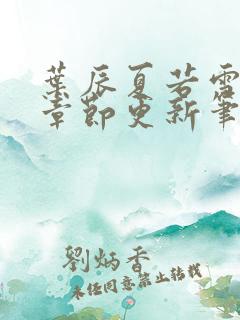 葉辰夏若雪
章節更新筆
劉炳香
未经同意禁止转载